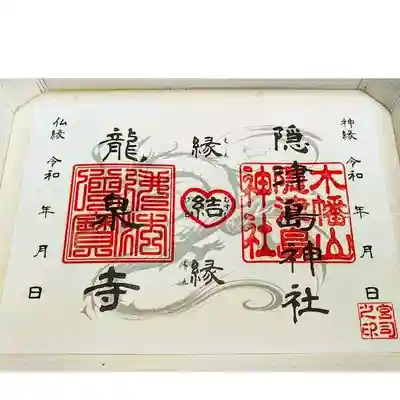 神縁 令和 年 月 日
隠津島神社
木幡山
隠津島
神社
宮司之印
縁結縁
龍泉寺
佛法僧寶
仏縁 令和 年 月 日